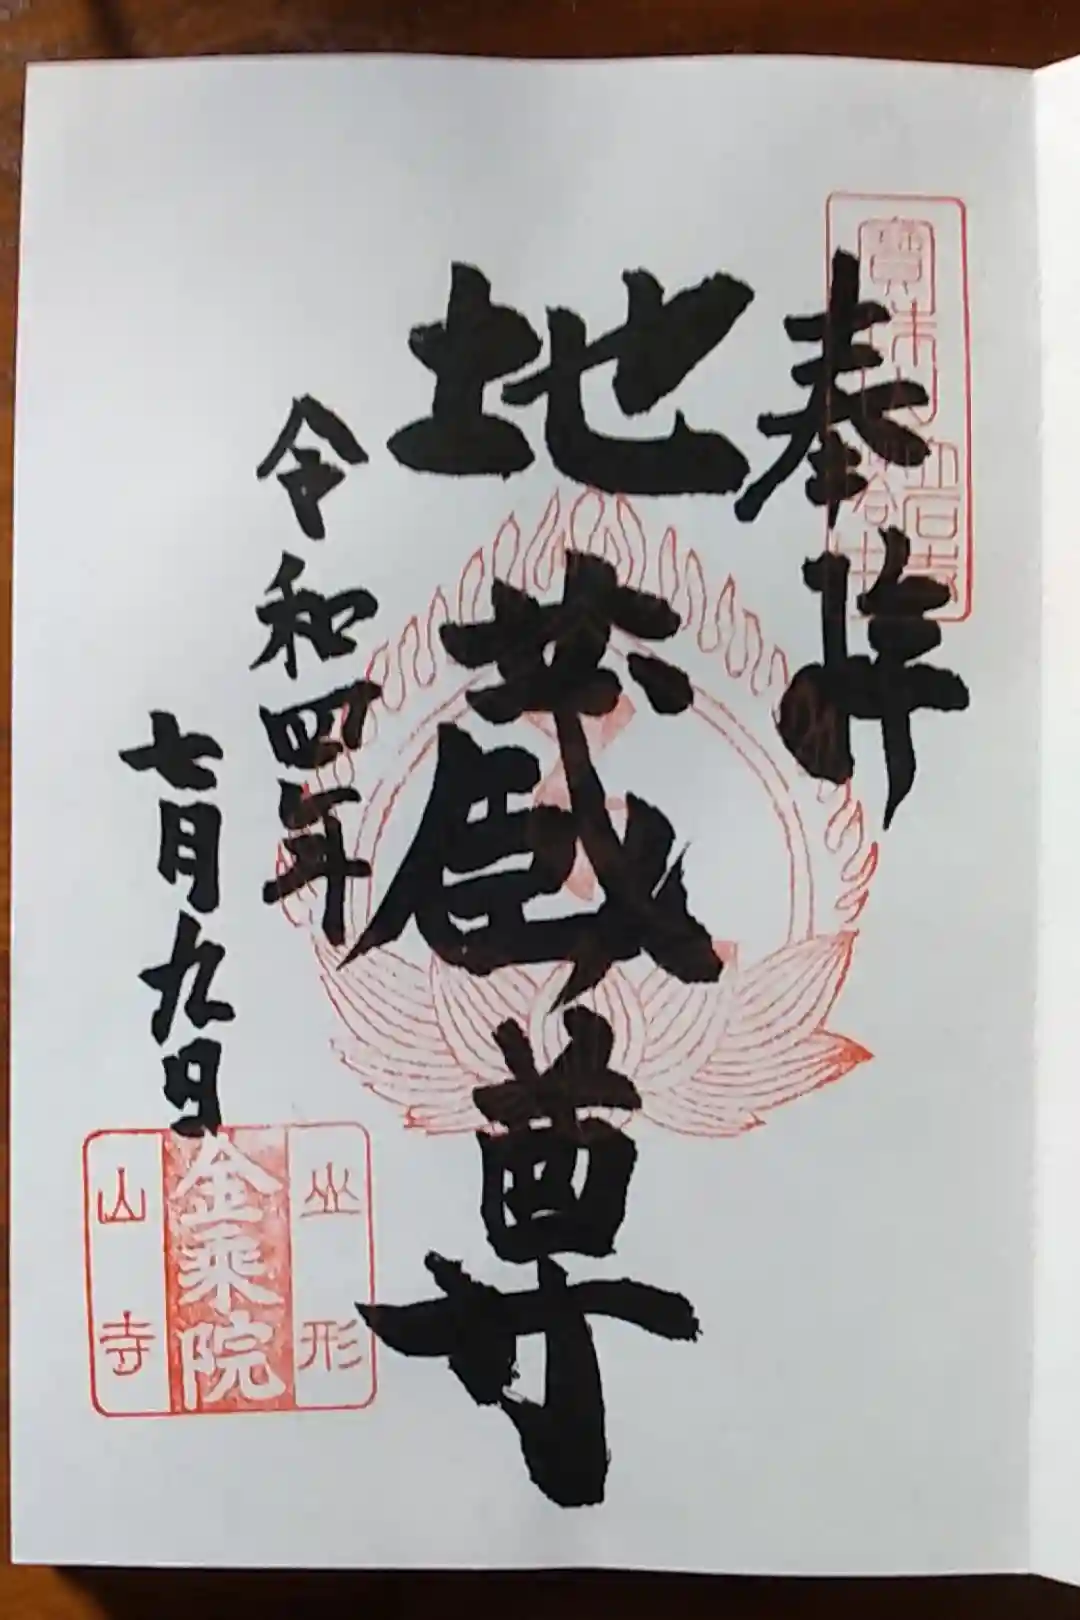 奉拝
地蔵尊
令和四年
七月九日
山形
金乗院
山寺